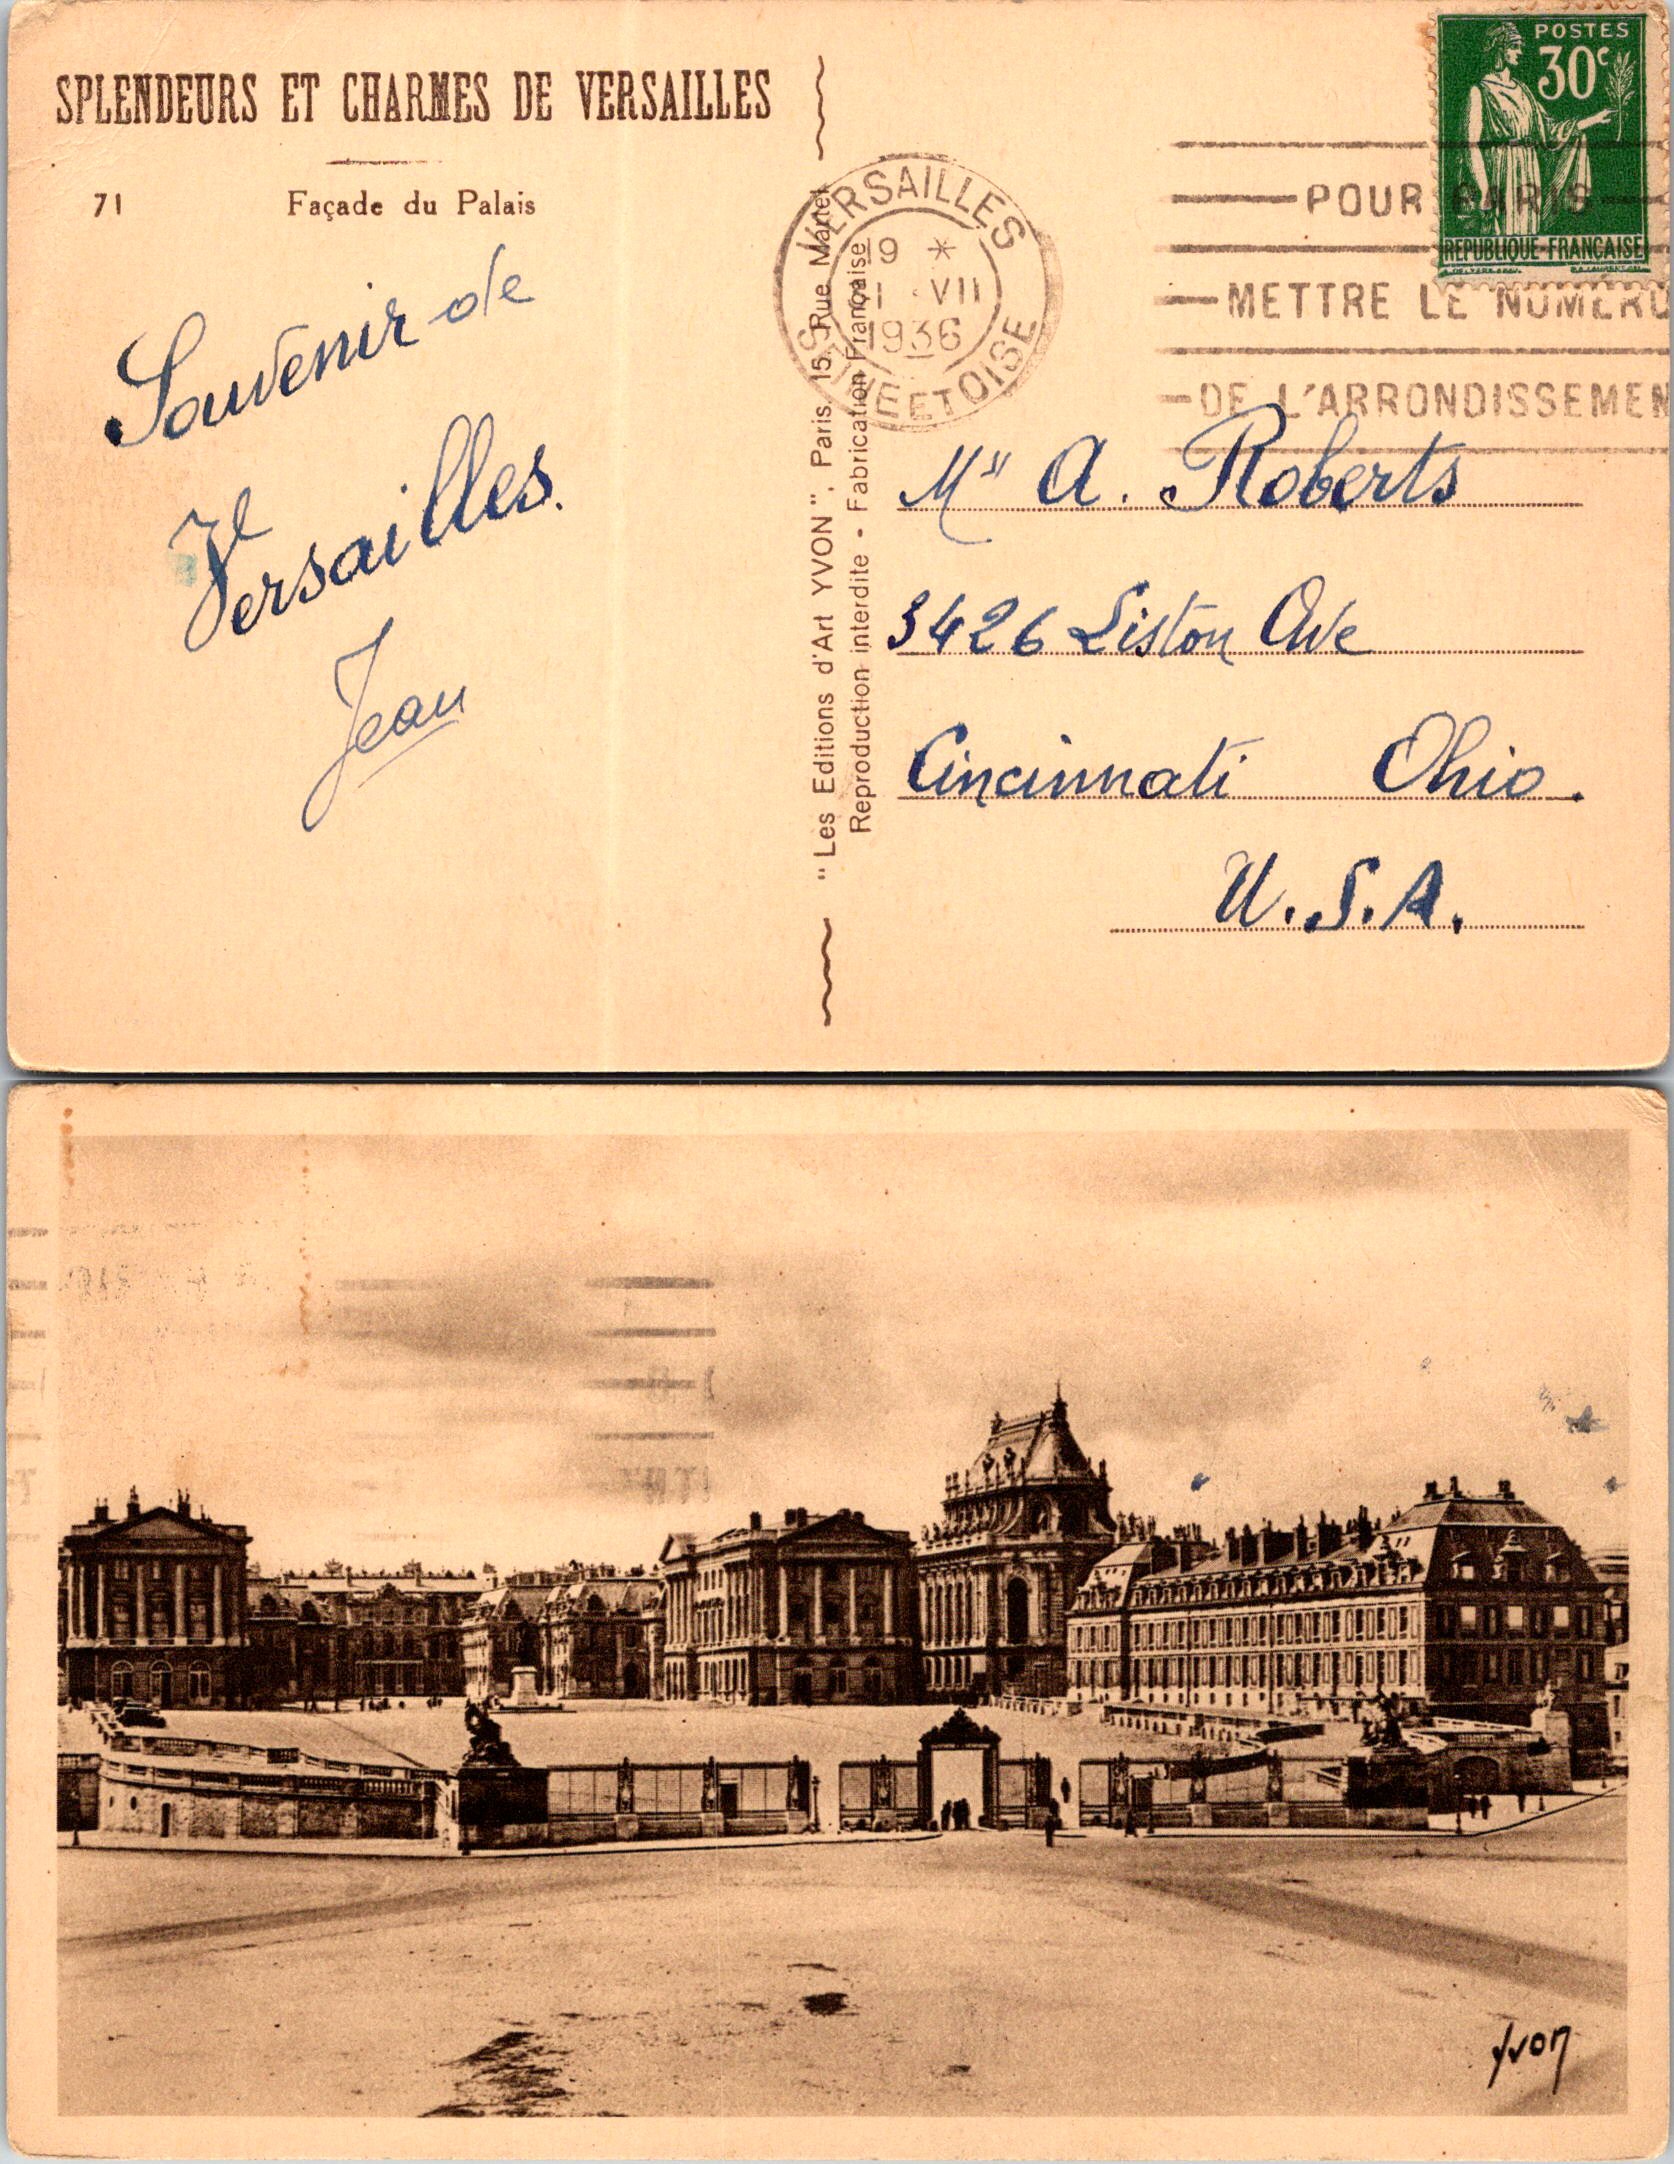 SPLENDEURS ET CHARMES DE VERSAILLES
71 Façade du Palais
Souvenir de
Versailles.
Jean
"Les Editions d'Art YVON", Paris, 15, Rue Martel
Reproduction interdite - Fabrication Française
VERSAILLES
19 *
VII
1936
SEINE ET OISE
POSTES
30c
REPUBLIQUE-FRANÇAISE
POUR PARIS
METTRE LE NUMERO
DE L'ARRONDISSEMEN
A. Roberts
3426 Liston Ave
Cincinnati Ohio.
U.S.A.
Yvon